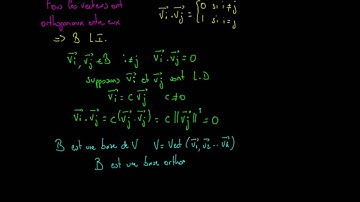 Tous les vecteurs sont
orthogonaux entre eux
v⃗i · v⃗j = { 0 si i≠j
1 si i=j
=> B L.I.
v⃗i, v⃗j ∈ B i≠j v⃗i · v⃗j = 0
supposons v⃗i et v⃗j sont L.D
v⃗i = c v⃗j c≠0
v⃗i · v⃗j = c(v⃗j · v⃗j) = c ||v⃗j||² = 0
B est une base de V V = Vect(v⃗1, v⃗2 ... v⃗k)
B est une base ortho